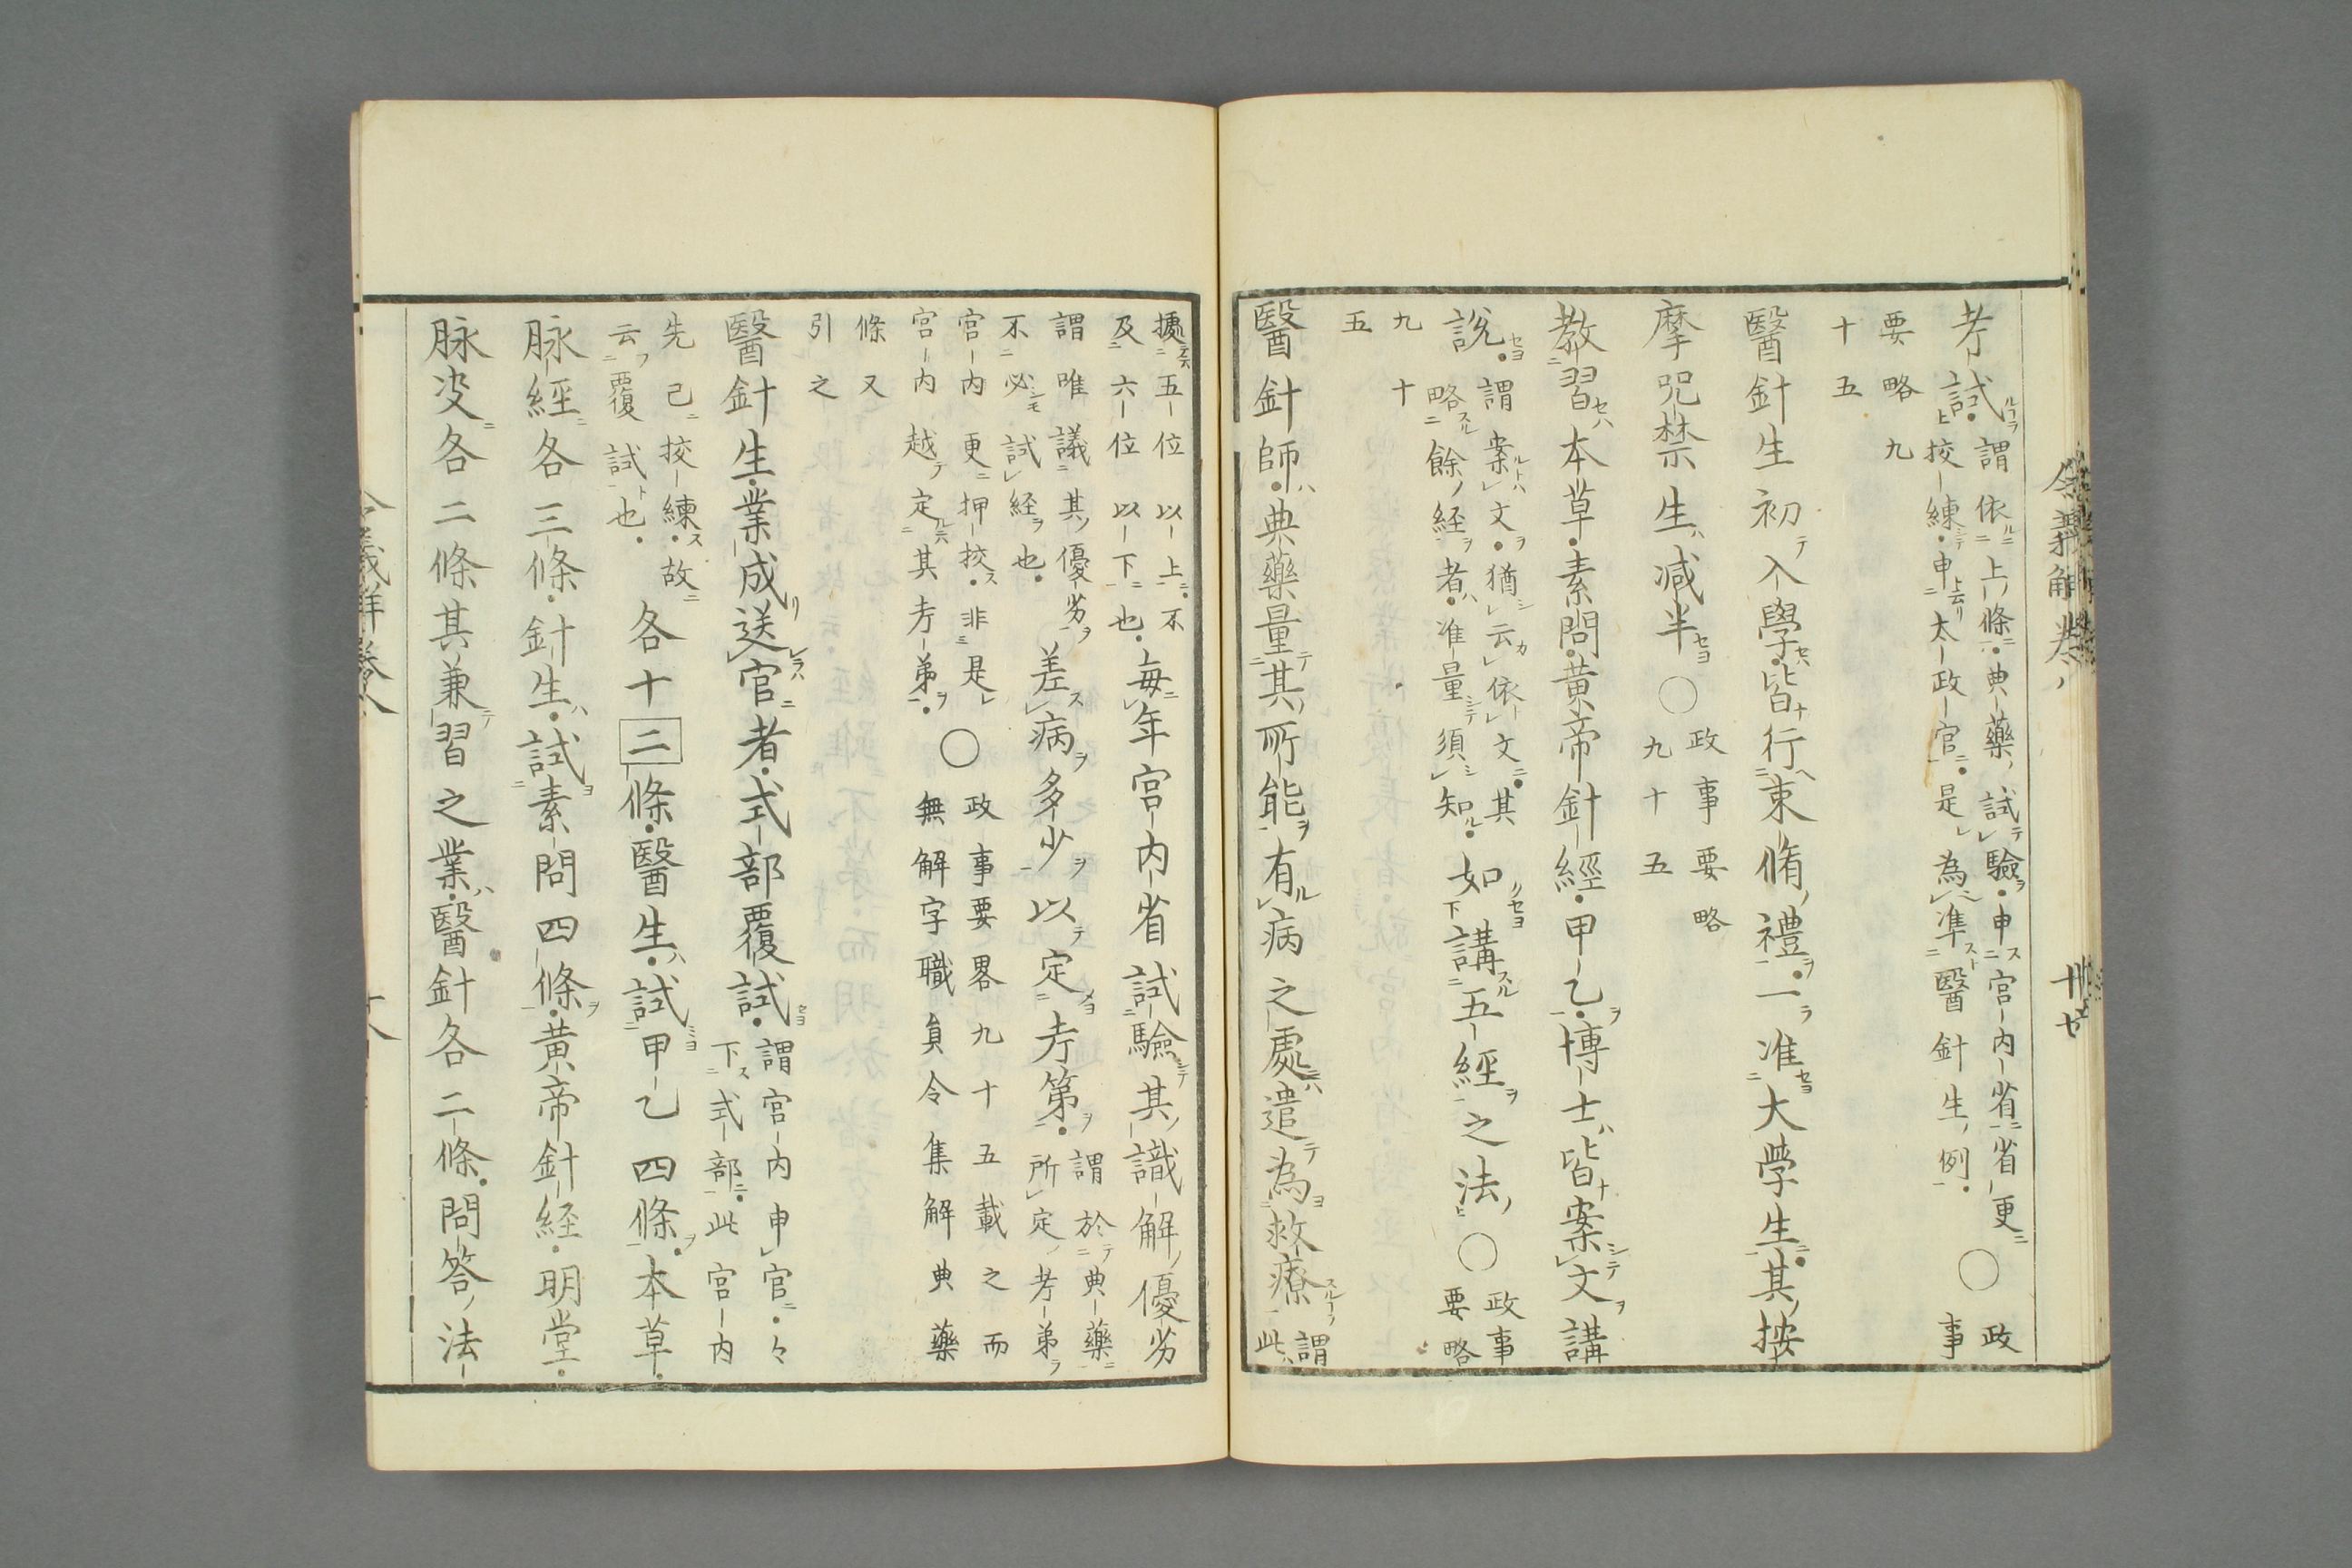 考試謂依上條典藥試驗申宮内省省更
校練申太政官是為准醫針生例○政事
要略九
十五
醫針生初入學皆行束脩禮一准大學生其按
摩咒禁生减半○政事要略
九十五
教習本草素問黄帝針經甲乙博士皆案文講
說謂案文猶云依文其
略餘経者准量須知如講五經之法○政事
要略
九十
五
醫針師典藥量其所能有病之處遣為救療謂
此
據五位以上不
及六位以下也每年宮内省試驗其識解優劣
謂唯議其優劣
不必試経也差病多少以定考第謂於典藥
所定考弟
宮内更押挍非是
宮内越定其考弟○政事要畧九十五載之而
無解字職員令集解典藥
條又
引之
醫針生業成送官者式部覆試謂宮内申官々
下式部此宮内
先已挍練故
云覆試也各十二條醫生試甲乙四條本草
脉經各三條針生試素問四條黄帝針経明堂
脉决各二條其兼習之業醫針各二條問答法